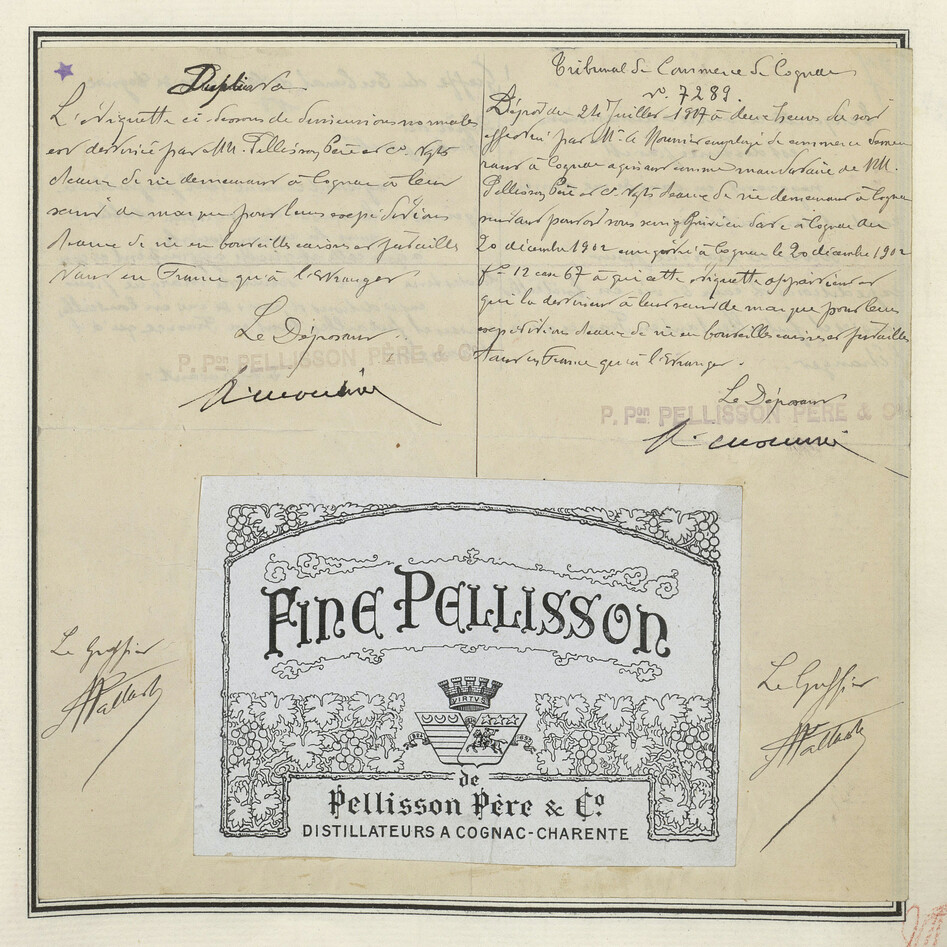 Duplicata
L'étiquette ci-dessous de dimensions normales
est destinée par MM. Pellisson Père et Co. Ngts
d'eaux de vie demeurant à Cognac à leur
servir de marque pour leurs expéditions
d'eaux de vie en bouteilles caisses et futailles
tant en France qu'à l'Etranger
Le Déposant
P. Pon PELLISSON PÈRE & Co
Tribunal de Commerce de Cognac
No. 7289.
Dépôt du 24 Juillet 1907 à deux heures du soir
effectué par Mr. A. Mounier employé de commerce demeu
rant à Cognac agissant comme mandataire de MM.
Pellisson Père et Co. Ngts d'eaux de vie demeurant à Cognac
suivant pouvoir sous seing privé en date à Cognac du
20 décembre 1902 enregistré à Cognac le 20 décembre 1902
fo 12 case 67 à qui cette étiquette appartient et
qui la destinent à leur servir de marque pour leurs
expéditions d'eaux de vie en bouteilles caisses et futailles
tant en France qu'à l'Etranger.
Le Déposant
P. Pon PELLISSON PÈRE & Co
A. Mounier
Le Greffier
Le Greffier
FINE PELLISSON
VIRTVS
de
Pellisson Père & Co.
DISTILLATEURS A COGNAC-CHARENTE